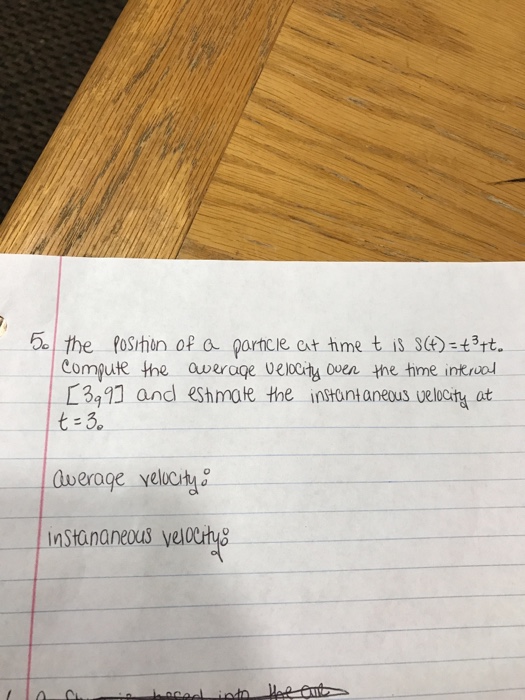 5. the position of a particle at time t is s(t)=t³+t.
Compute the average velocity over the time interval
[3,9] and estimate the instantaneous velocity at
t=3.
average velocity:
instananeous velocity:
into the